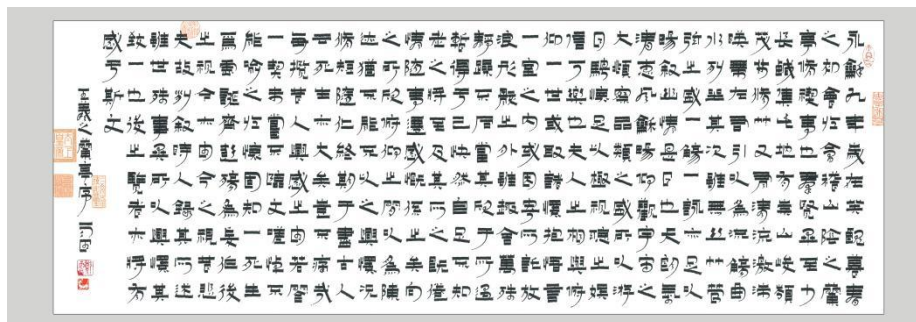 永龢九年歲在癸丑暮春
之初會于會稽山陰之蘭
亭脩禊事也羣賢畢至少
長咸集此地有崇山峻領
茂林脩竹又有清流激湍
暎帶左右引以為流觴曲
水列坐其次雖無絲竹管
弦之盛一觴一詠亦足以
暢敘幽情是日也天朗氣
清惠風龢暢仰觀宇宙之
大俯察品類之盛所以游
目騁懷足以極視聽之娛
信可樂也夫人之相與俯
仰一世或取諸懷抱悟言
一室之內或因寄所託放
浪形骸之外雖趣舍萬殊
靜躁不同當其欣于所遇
暫得于己快然自足不知
老之將至及其所之既倦
情隨事遷感慨係之矣向
之所欣俯仰之間以為陳
迹猶不能不以之興懷況
脩短隨化終期于盡古人
云死生亦大矣豈不痛哉
每攬昔人興感之由若合
一契未嘗不臨文嗟悼不
能喻之于懷固知一死生
為虛誕齊彭殤為妄作後
之視今亦由今之視昔悲
夫故列敘時人錄其所述
雖世殊事異所以興懷其
致一也後之覽者亦將有
感于斯文
王羲之蘭亭序